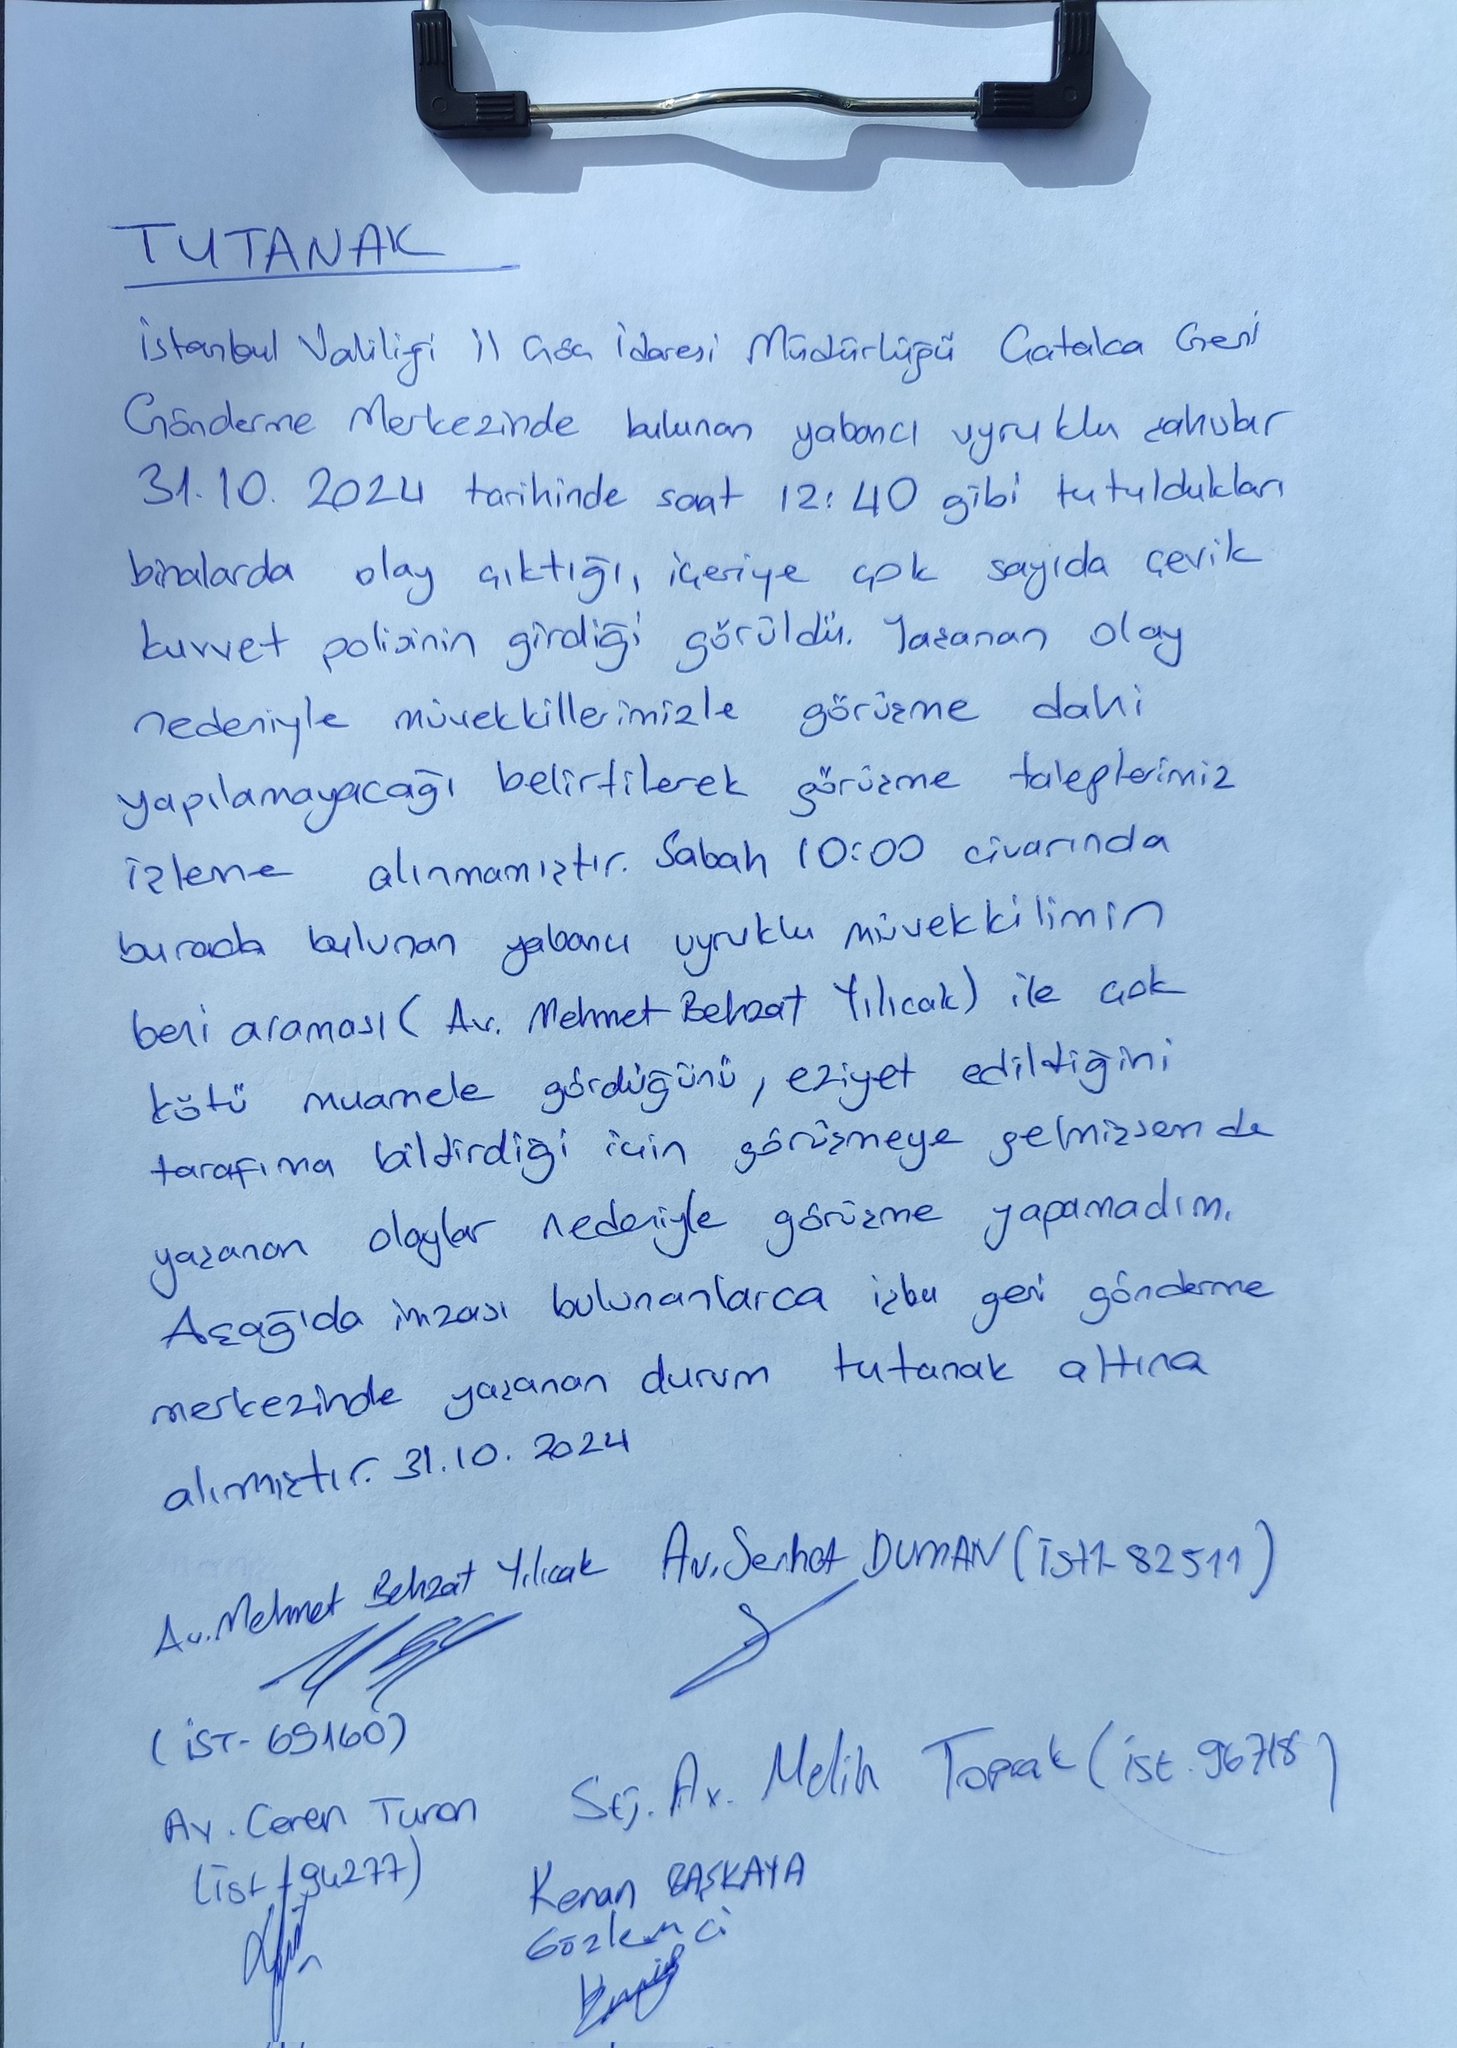 TUTANAK
İstanbul Valiliği İl Göç İdaresi Müdürlüğü Çatalca Geri
Gönderme Merkezinde bulunan yabancı uyruklu şahıslar
31.10.2024 tarihinde saat 12:40 gibi tutuldukları
binalarda olay çıktığı, içeriye çok sayıda çevik
kuvvet polisinin girdiği görüldü. Yaşanan olay
nedeniyle müvekkillerimizle görüşme dahi
yapılamayacağı belirtilerek görüşme taleplerimiz
işleme alınmamıştır. Sabah 10:00 civarında
burada bulunan yabancı uyruklu müvekkilimin
beni araması (Av. Mehmet Behzat Yılıcak) ile çok
kötü muamele gördüğünü, eziyet edildiğini
tarafıma bildirdiği için görüşmeye gelmişsem de
yaşanan olaylar nedeniyle görüşme yapamadım.
Aşağıda imzası bulunanlarca işbu geri gönderme
merkezinde yaşanan durum tutanak altına
alınmıştır. 31.10.2024
Av. Mehmet Behzat Yılıcak Av. Serhat DUMAN (İst1-82511)
(İST-69160)
Stj. Av. Melih Toprak (ist. 96718)
Av. Ceren Turan
(İst 94277)
Kenan BAŞKAYA
Gözlemci